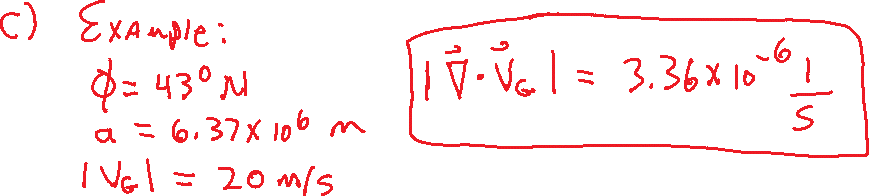 c) Example:
ϕ = 43° N
a = 6.37 x 10⁶ m
|V_G| = 20 m/s
|∇⃗ · V⃗_G| = 3.36 x 10⁻⁶ 1/s